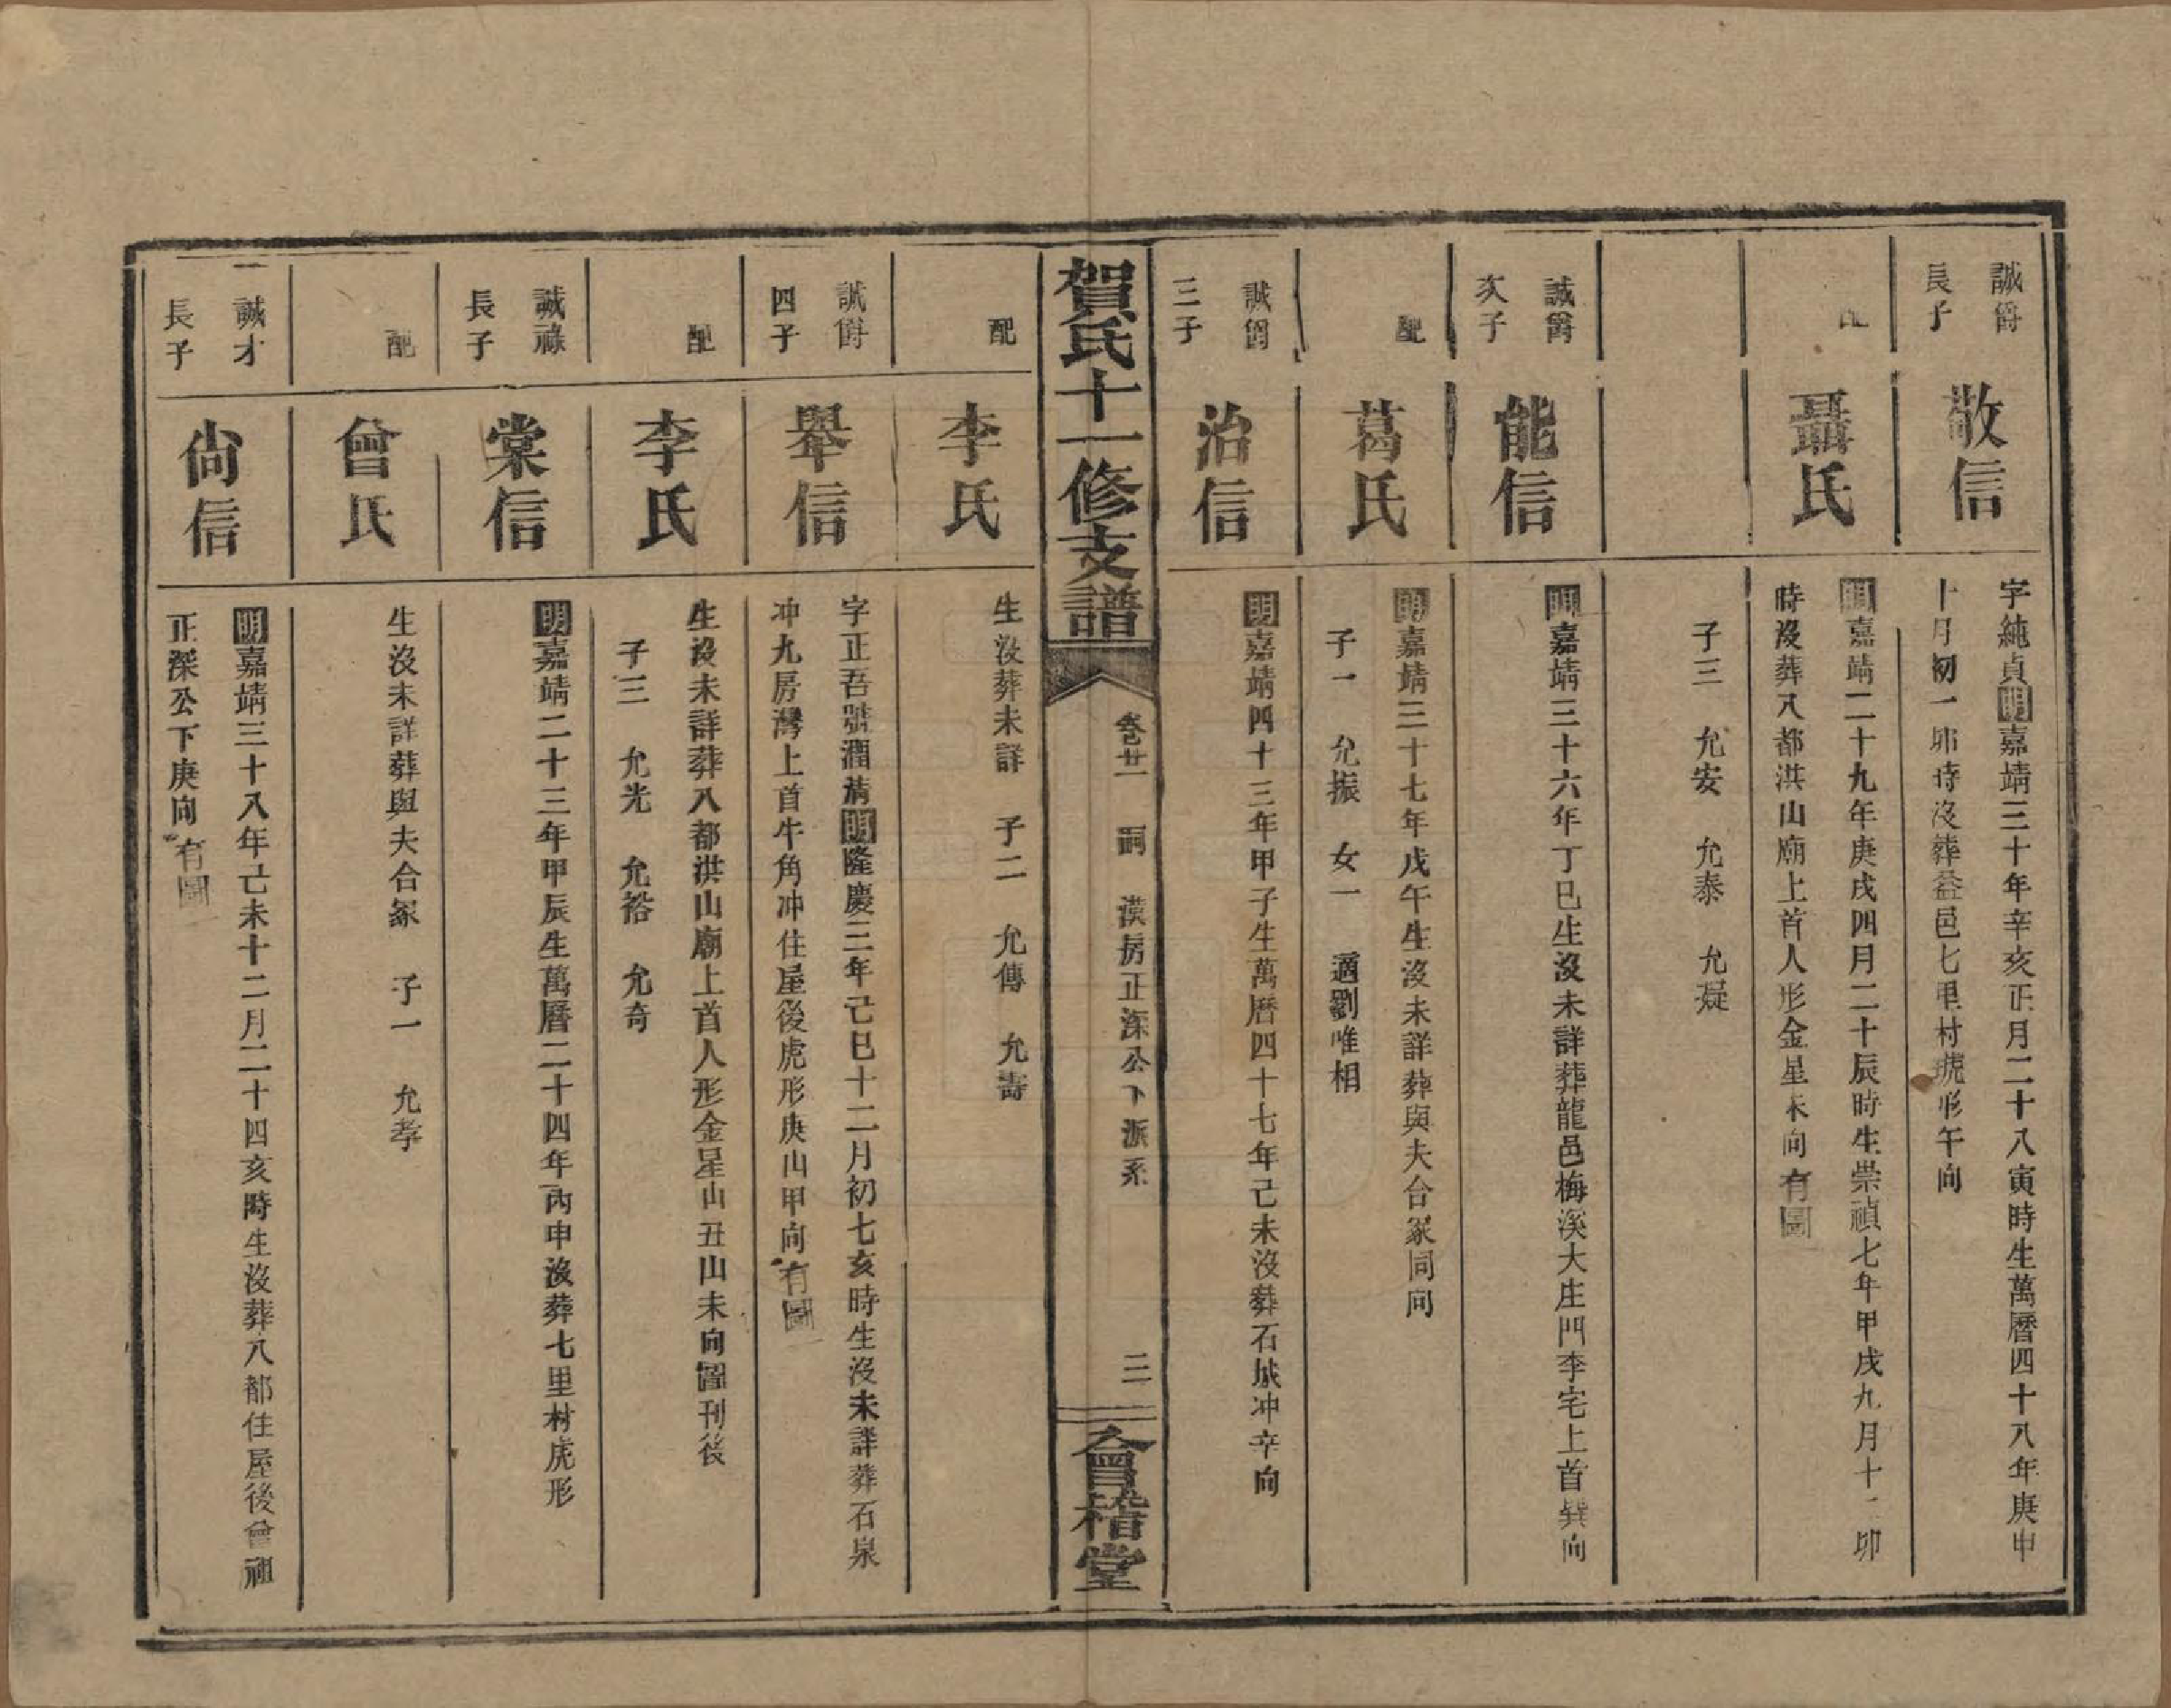 誠爵
長子
敬信
字純貞明嘉靖三十年辛亥正月二十八寅時生萬曆四十八年庚申
十月初一卯時沒葬益邑七里村號形午向
配
聶氏
明嘉靖二十九年庚戌四月二十辰時生崇禎七年甲戌九月十二卯
時沒葬八都洪山廟上首人形金星未向有圖
子三　允安　允泰　允疑
誠爵
次子
能信
明嘉靖三十六年丁巳生沒未詳葬龍邑梅溪大庄門李宅上首巽向
配
葛氏
明嘉靖三十七年戊午生沒未詳葬與夫合冢同向
子一　允振　女一　適劉唯相
誠爵
三子
治信
明嘉靖四十三年甲子生萬曆四十七年己未沒葬石城冲辛向
賀氏十一修支譜
卷廿一　嗣　漢房正深公下派系
二
會稽堂
配
李氏
生沒葬未詳　子二　允傳　允壽
誠爵
四子
舉信
字正吾號潤菁明隆慶三年己巳十二月初七亥時生沒未詳葬石泉
冲九房灣上首牛角冲住屋後虎形庚山甲向有圖
配
李氏
生沒未詳葬八都洪山廟上首人形金星山丑山未向圖刊後
子三　允光　允裕　允奇
誠祿
長子
棠信
明嘉靖二十三年甲辰生萬曆二十四年丙申沒葬七里村虎形
配
曾氏
生沒未詳葬與夫合冢　子一　允孝
誠才
長子
尙信
明嘉靖三十八年己未十二月二十四亥時生沒葬八都住屋後曾祖
正深公下庚向有圖